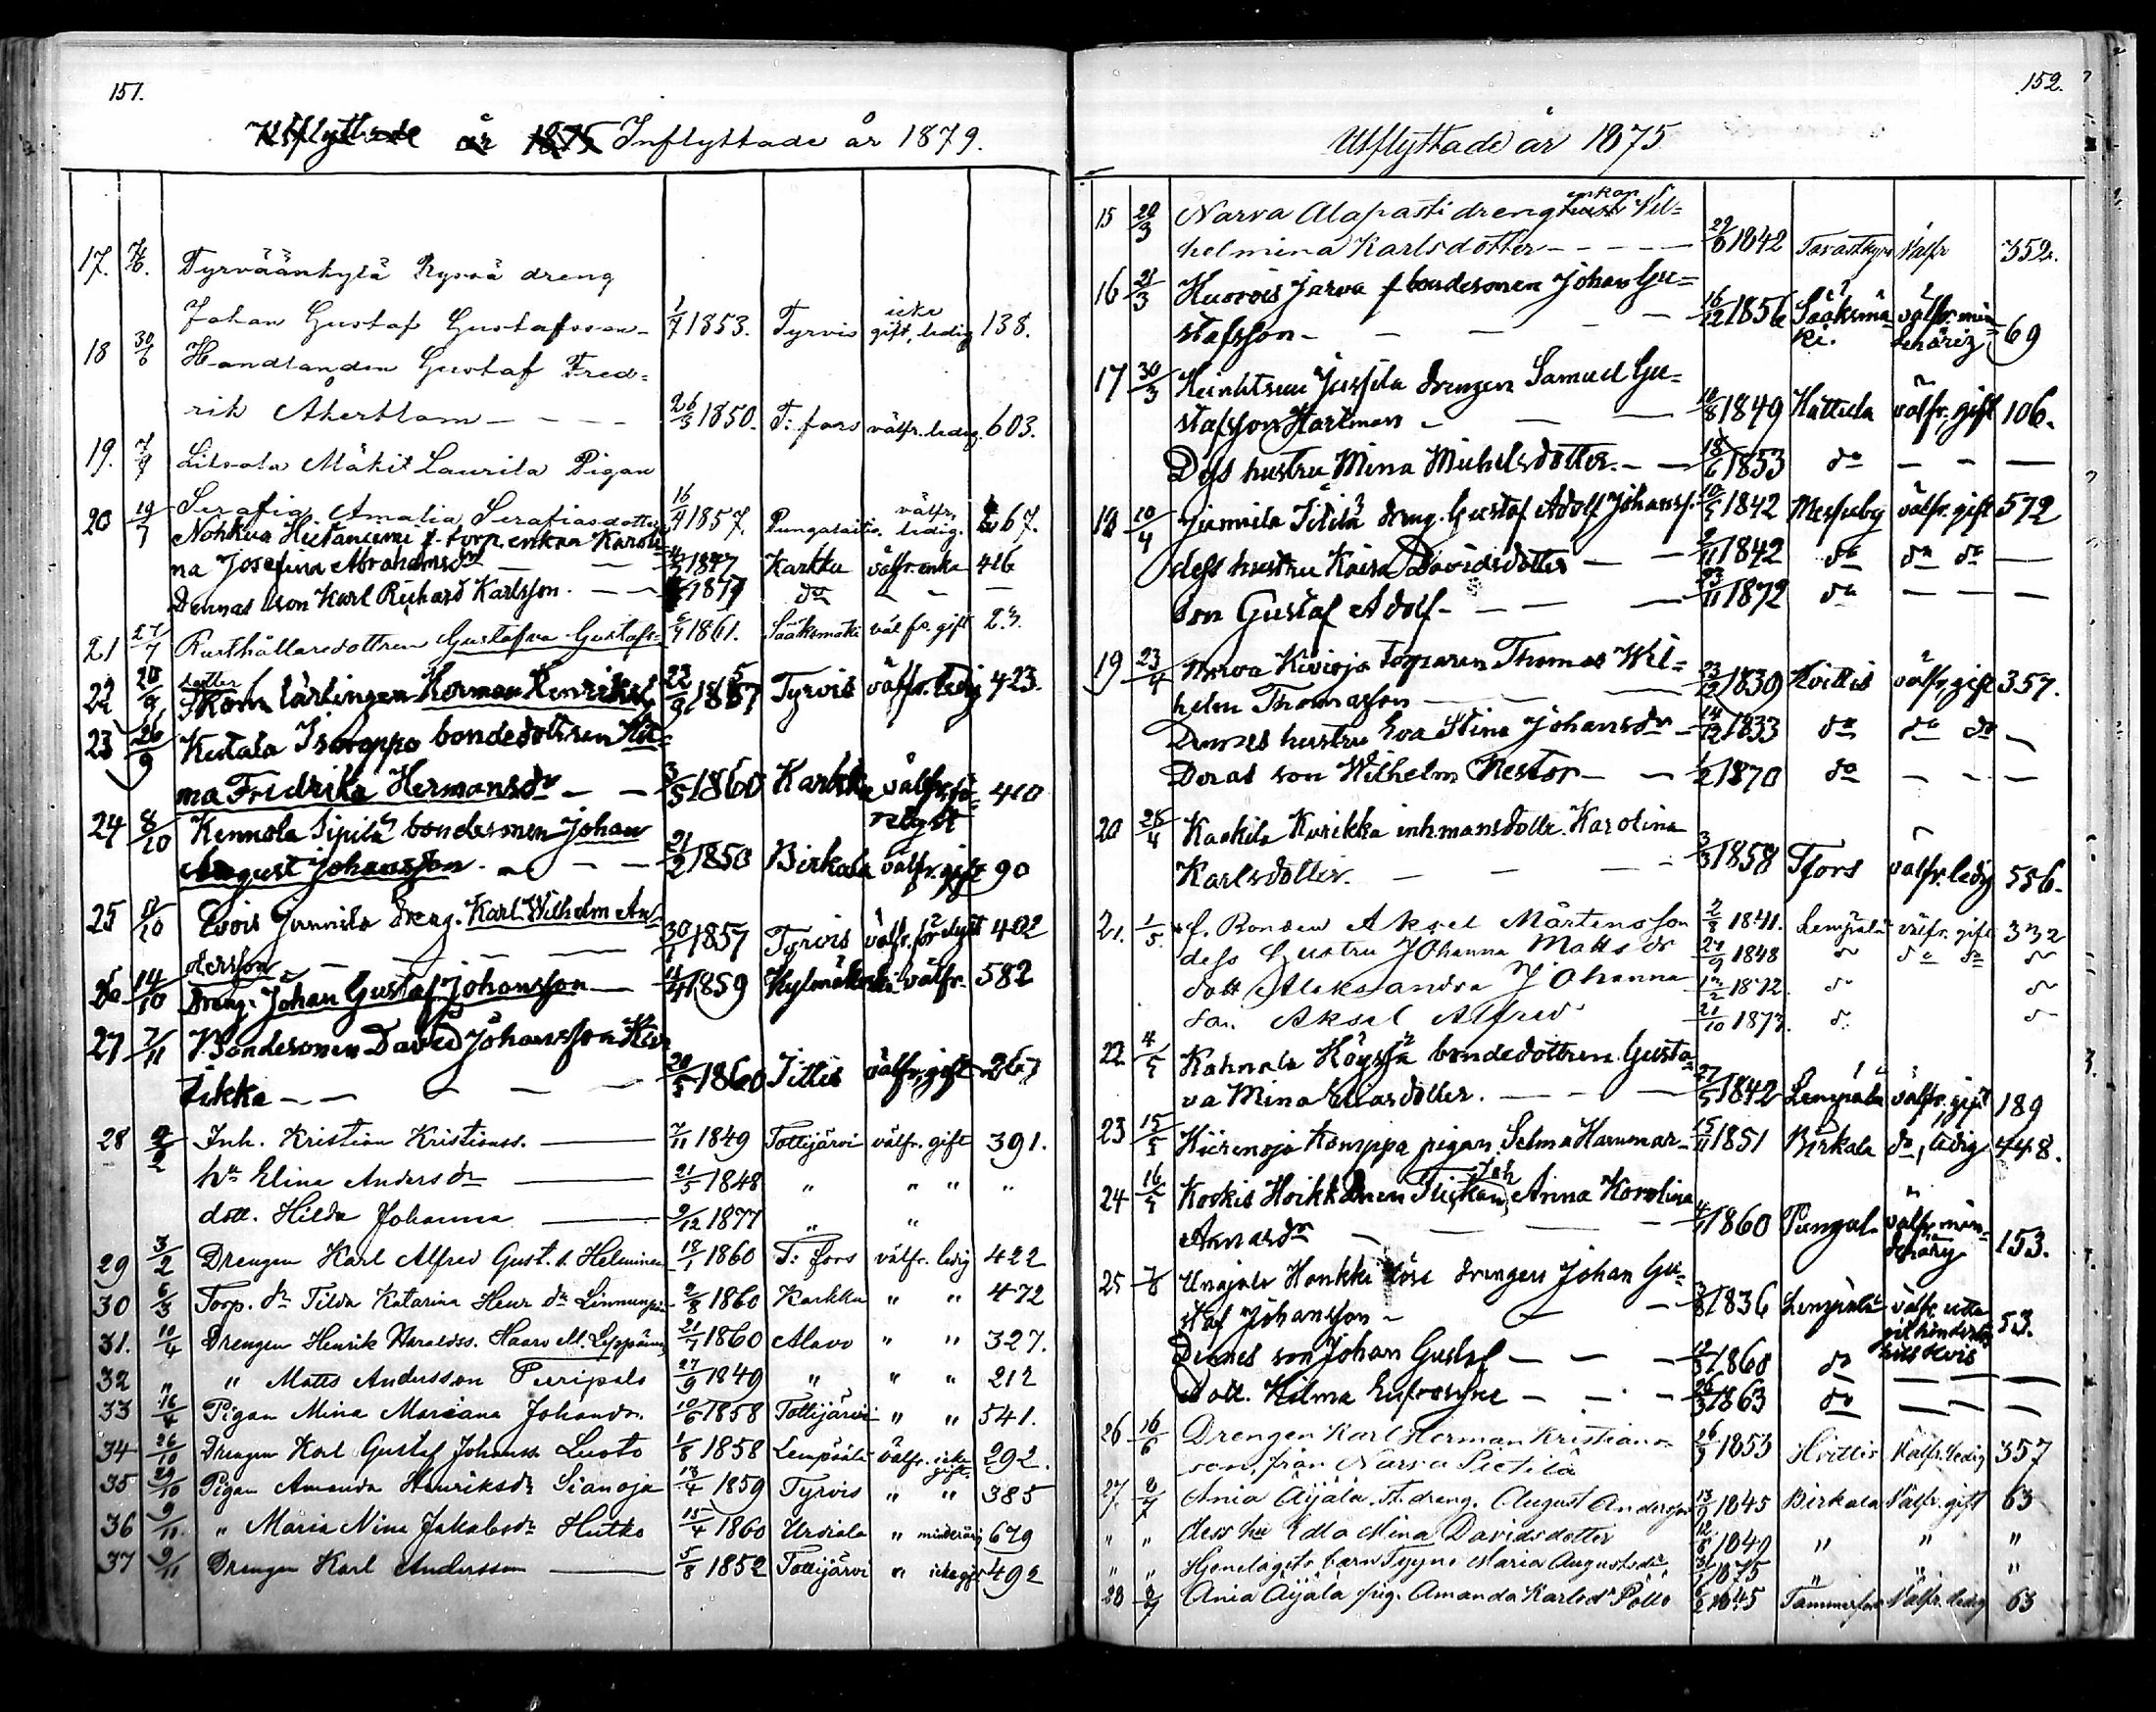 151.
Utflyttade år 1875 Inflyttade år 1879.
17. Tyrväänkylä Ryssä dreng
Johan Gustaf Gustafsson 1/7 1853. Tyrvis icke gift, ledig 138.
18 30/6 Handlanden Gustaf Fred=
rik Åkerblom 26/3 1850. T: fors välfr. ledig. 603.
19. 7/9 Mäki Laurila Pigan
Serafia Amalia Serafiasdotter 16/4 1857. Pungalaitio. välfr. ledig. 67.
20 19/7 Nohkua Hietaniemi f. torp. enkan Karoli
na Josefina Abrahamsdr 1847 Karkku välfr. enka 416
Dennas son Karl Richard Karlsson. 1879 do
21 27/7 Rusthållaredottren Gustafva Gustafs= 1861. Sääksmäki välfr. gift 23.
dotter
22 Skom. lärlingen Herman Henriks 22/9 1857 Tyrvis välfr. ledig 423.
23 26/9 Kutala Isoroppo bondedottren Hil=
ma Fredrika Hermansdr 3/5 1860 Karkku välfr. 410
24 8/10 Kennola Sipilä bondesonen Johan
August Johansson 21/2 1850 Birkala välfr. gift 90
25 11/10 Junnila dreng. Karl Wilhelm An=
dersson 30/1 1857 Tyrvis välfr. 402
26 14/10 Dreng. Johan Gustaf Johansson 1859 Kylmäkoski välfr. 582
27 7/11 Bondesonen David Johansson Kiv
ikka 20/5 1860 Tottis välfr. gift 267
28 9/2 Inh. Kristian Kristianss. 7/11 1849 Tottijärvi välfr. gift 391.
hu Elina Andersdr 21/5 1848 " " " "
dott. Hilda Johanna 9/12 1877 " "
29 3/2 Drengen Karl Alfred Gust. s. Helminen 18/1 1860 T: fors välfr. ledig 422
30 6/3 Torp. dr Tilda Katarina Henr. dr 2/8 1860 Karkku " " 472
31. 10/4 Drengen Henrik Haraldss. 21/7 1860 Alavo " " 327.
32 " " Matts Andersson 27/9 1849 " " " 212
33 16/4 Pigan Mina Mariana Johansdr. 10/6 1858 Tottijärvi " " 541.
34 26/10 Drengen Karl Gustaf Johanss. Luoto 1/8 1858 Lempäälä välfr. icke gift. 292.
35 29/10 Pigan Amanda Henriksdr Sianoja 13/4 1859 Tyrvis " " 385
36 9/11 " Maria Nina Jakobsdr Hutko 15/4 1860 Urdiala " minderårig 679
37 9/11 Drengen Karl Andersson 5/8 1852 Tottijärvi " icke gift 492
152.
Utflyttade år 1875
15 20/3 Narva Alapasti dreng enkan Vil=
helmina Karlsdotter 1842 Tavastkyro Välfr 352.
16 21/3 Kuorois Jarva f bondesonen Johan Gu=
stafsson 16/12 1856 Sääksmä=ki. välfr. min=derårig 69
17 30/3 Jussila drengen Samuel Gu=
stafsson Hartman 10/8 1849 Hattula välfr. gift 106.
Dess hustru Mina Michelsdotter. 18/6 1853 do
18 10/4 Junnila Titilä dreng. Gustaf Adolf Johanss. 1842 Messuby välfr. gift 572
dess hustru Kaisa Davidsdotter 1842 do do do
son Gustaf Adolf 23/11 1872 do
19 23/4 Narva Kivioja torparen Thomas Wil=
helm Thomasson 23/12 1839 Hvittis välfr. gift 357.
Dennes hustru Eva Stina Johansdr 14/12 1833 do do do
Deras son Wilhelm Nestor 1870 do
20 28/4 Kaakila Kurikka inhmansdottr. Karolina
Karlsdotter. 3/3 1858 Tfors välfr. ledig 556.
21. 1/5. f. Bonden Aksel Mårtensson 2/8 1841. Lempälä välfr. gift 332
dess hustru Johanna Mattsdr 29/9 1848 do do do do
dott Aleksandra Johanna 1872. do do
son Aksel Alfred 21/10 1873. do do
22 4/5 Kahnala Köyssä bondedottren Gusta=
va Mina Eliasdotter. 27/5 1842 Lempälä välfr. gift 189
23 15/5 Kierenoja Komppa pigan Selma Hammar 15/11 1851 Birkala do, ledig 448.
24 16/5 Koskis Anna Karolina
Annasdr 1860 Pungal. välfr. min=derårig 153.
25 7/6 Honkki drengen Johan Gu=
staf Johansson 3/8 1836 Lempälä välfr. 53.
Dennes son Johan Gustaf 1860 do
dott. Hilma Eufrosyne 1863 do
26 16/6 Drengen Karl Herman Kristians=
son, från Narva Pietilä 26/9 1853 Hvittis Välfr. ledig 357
27 2/7 Ania Äijälä dreng. August Andersson 1845 Birkala Välfr. gift 63
" " dess hu Edla Mina Davidsdotter 1849 " " "
" " barn Tyyne Maria Augustsdr 1875 " " "
28 2/7 Ania Äijälä pig. Amanda Karlsdr Pollo 1845 Tammerfors Välfr. ledig 63